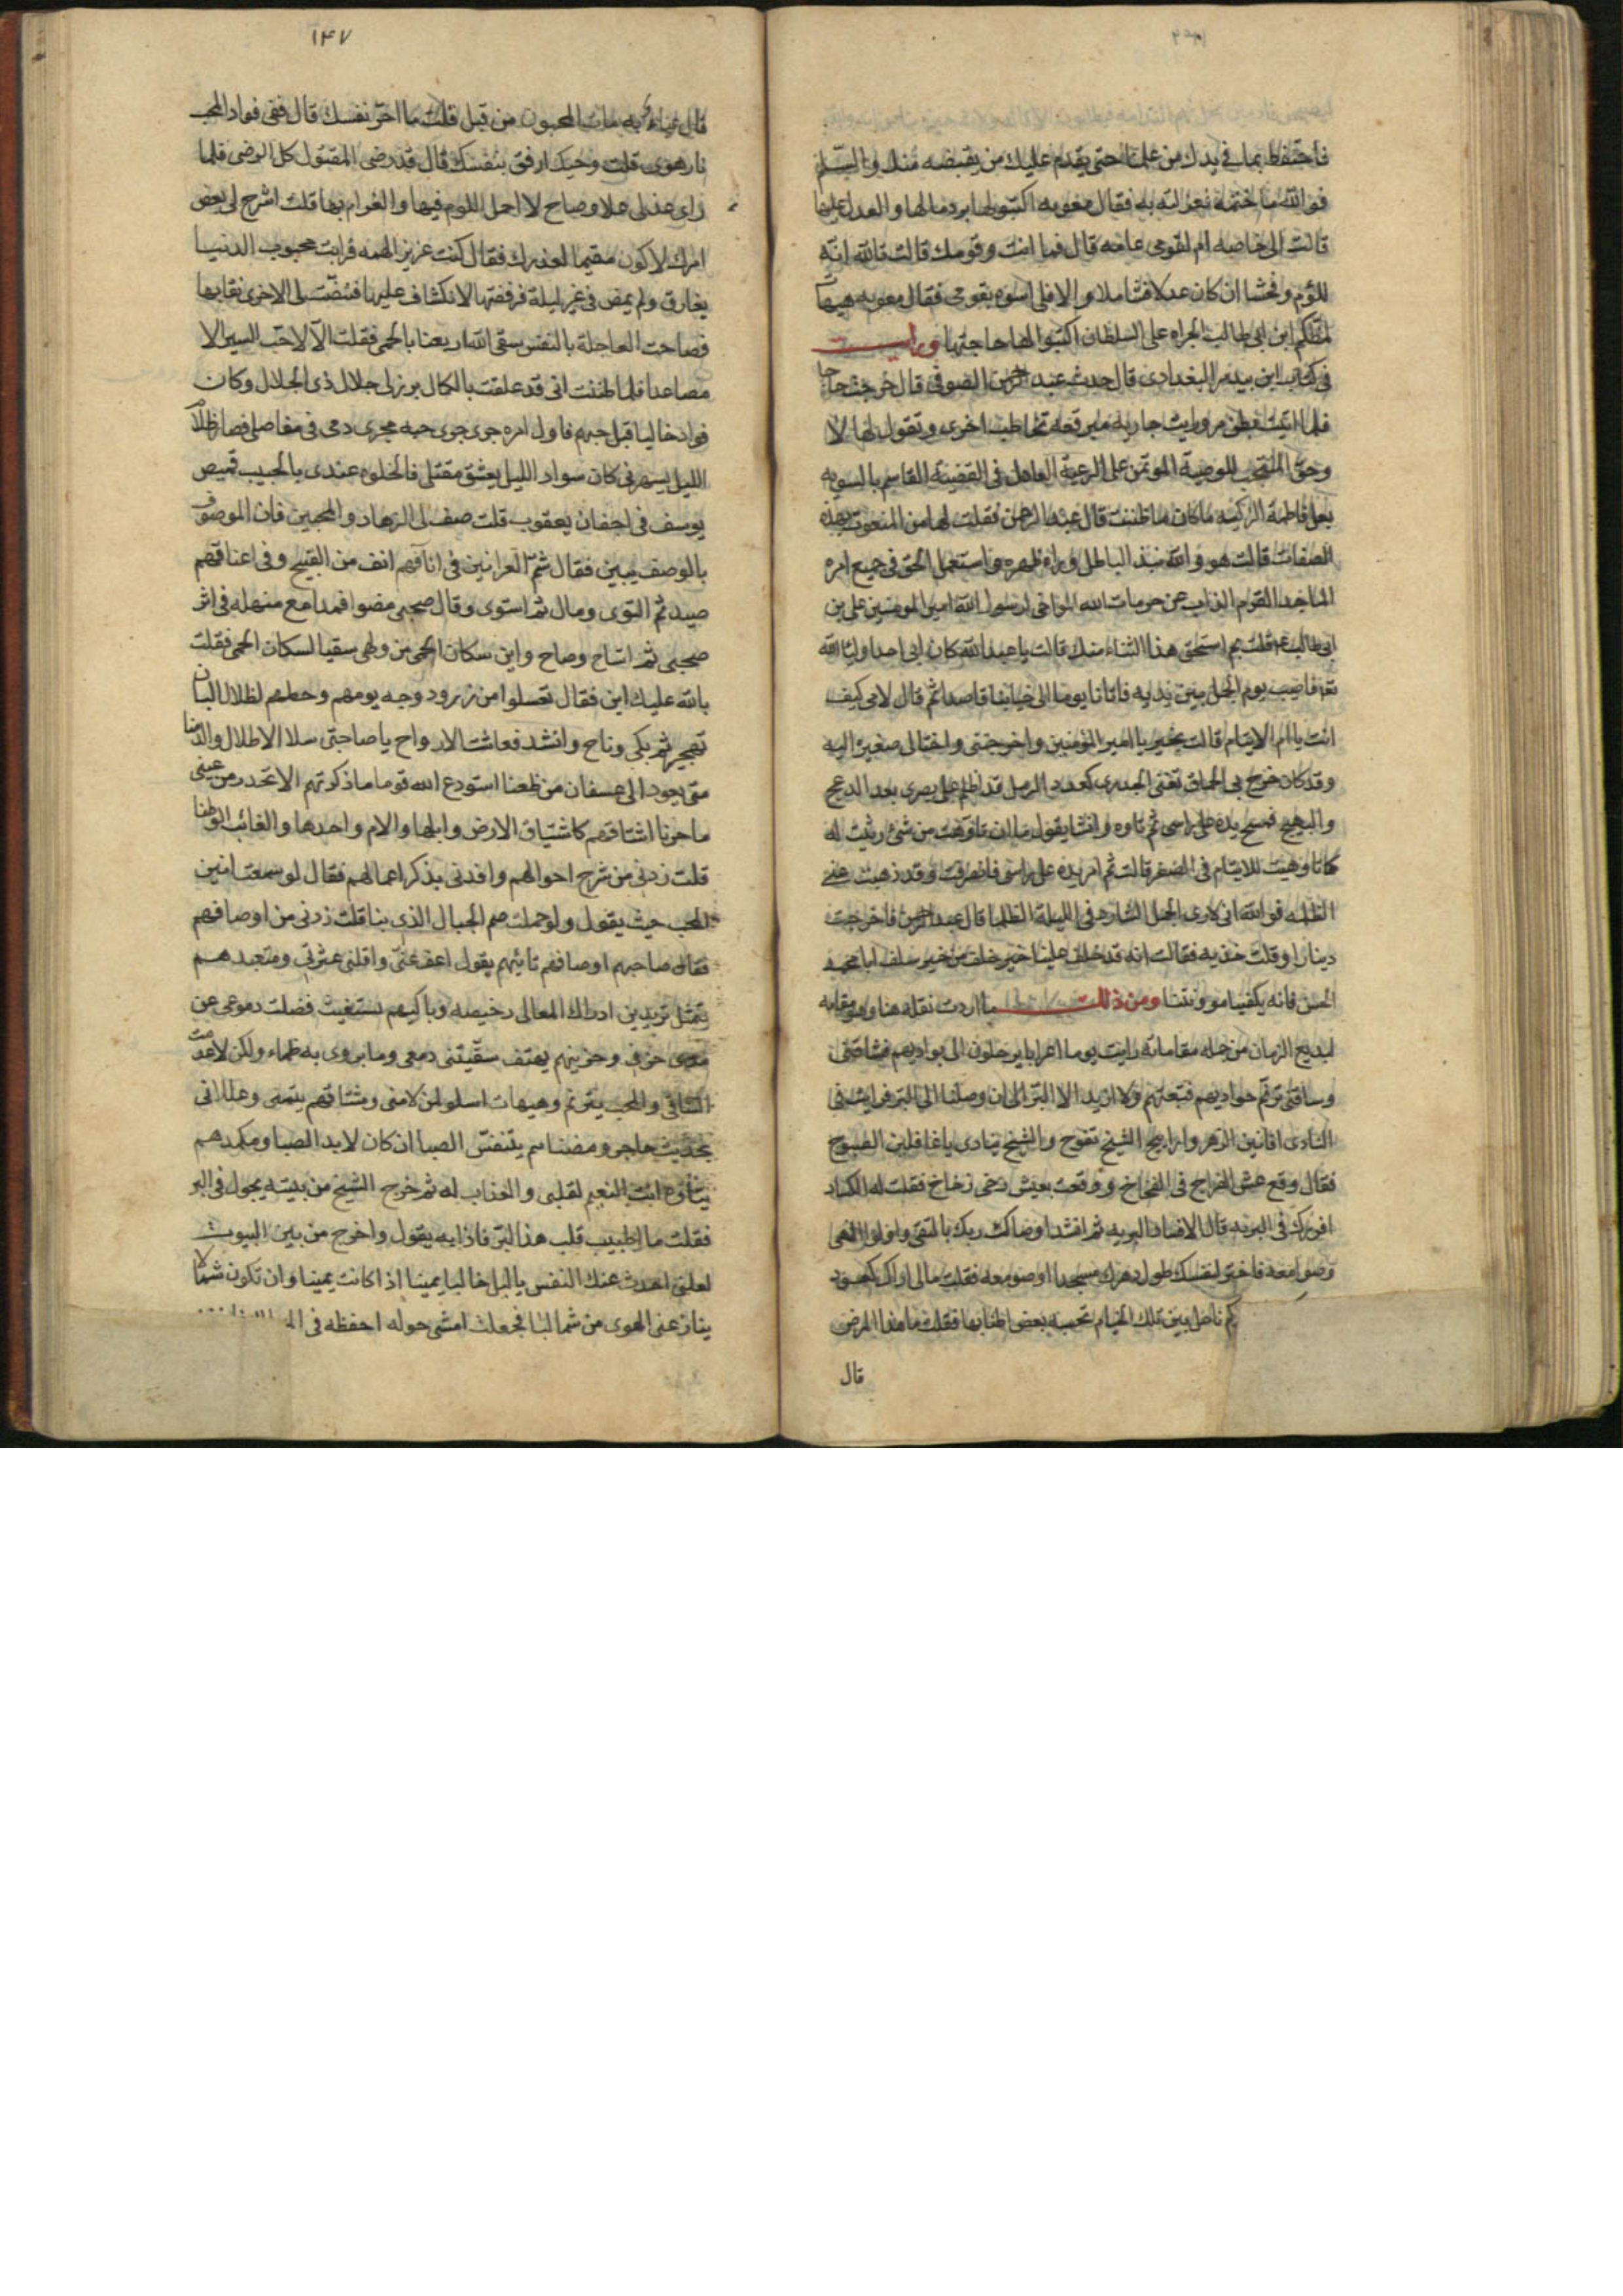 فاحتفظ بما فى يدك من علمنا حتى يقدم عليك من يقبضه منك والسلم
فوالله ما ختمه فقال معويه اكتبوا لها برد مالها والعدل عليها
قالت الى خاصه ام لقومى عامه قال فما انت وقومك قالت تالله انه
للؤم وفحشا ان كان عدلا شاملا والا فلى اسوه بقومى فقال معويه هيهات
لمظكم ابن ابى طالب الجراه على السلطان اكتبوا لها حاجتها ورايت
فى كتاب ابن بيدمر البغدادى قال حدث عبد الرحمن الصوفى قال خرجت حاجا
فلما اتيت بطن مر ورايت جاريه مبرقعه تخاطب اخرى وتقول لها لا
وحق المنتجب للوصية الموتمن على الرعية العادل فى القضية القاسم بالسويه
بعل فاطمة الزكيه ما كان ما ظننت قال عبد الرحمن فقلت لها من المنعوت بهذه
الصفات قالت هو والله نبذ الباطل وراء ظهره واستعمل الحق فى جميع امره
الماجد القوام الذاب عن حرمات الله المواخى لرسول الله امير المومنين على بن
ابى طالب فقلت بم استحق هذا الثناء منك قالت يا عبد الله كان ابى احد اوليائه
فاصيب يوم الجمل بين يديه فاتانا يوما الى خبائنا قاصدا ثم قال لامى كيف
انت يا ام الايتام قالت بخير يا امير المومنين واخرجتنى واختا لى صغيره اليه
وقد كان خرج بى الجدرى كعدد الرمل قد اظلم على بصرى بعد الدعج
والبهج فمسح يده على راسى ثم تاوه وانشا يقول ما ان تاوهت من شئ رثيت له
كما تاوهت للايتام فى الصغر قالت ثم امر يده على راسى فانصرفت وقد ذهبت عنى
الظلمه فوالله انى لارى الجمل الشارد فى الليلة الظلما قال عبد الرحمن فاخرجت
دينارا وقلت خذيه فقالت انه قد خلف علينا خير خلف من خير سلف ابا محمد
الحسن فانه يكفينا موونتنا ومن ذلك ما اردت نقله هنا وهو مقامه
لبديع الزمان من جمله مقاماته رايت يوما اعرابا يرحلون الى بواديهم
وساقنى ترنم حواديهم فتبعتهم ولا اريد الا البر الى ان وصلنا الى البر فرايت فى
النادى افانين الزهر واراييح الشيح تفوح والشيخ ينادى يا غافلين الصبوح
فقال وقع عش الفراخ فى الفخاخ ووقعت بعيش رخى زخاخ فقلت له
افردك فى البريه قال الافساد البريه ثم انشد اوصاك ربك بالتقى واولوا النهى
وصوا معه فاختر لنفسك طول دهرك مسجدا او صومعه فقلت ما لى اراك كعود
ناحل بين تلك الخيام تحسبه بعض اطنابها فقلت ما هذا المرض
قال
١٤٧
قال به مات المحبون من قبل قلت ما احر نفسك قال ففى فواد المحب
نار هوى قلت ويحك ارفق بنفسك قال قد رضى المقتول كل الرضى فلما
راى عذلى علا وصاح لا احمل اللوم فيها والغرام بها قلت اشرح لى بعض
امرك لاكون مقيما لعذرك فقال كنت عزيز الهمه فرايت محبوب الدنيا
يفارق ولم يمض فى غير ليلة فرفضتها لانكشاف عليها فنضت لى الاخرى نقابها
فصاحت العاجلة بالنفس سقى الله اربعنا بالحمى فقلت الا لا احب السير الا
مصاعدا فلما ظننت انى قد علقت بالكمال برز لى جلال ذى الجلال وكان
فوادى خاليا قبل حبهم فاول امره جوى جرى حبه مجرى دمى فى مفاصلى فصار ظلام
الليل يسهرنى كان سواد الليل يعشق مقتلى فالخلوه عندى بالحبيب قميص
يوسف فى اجفان يعقوب قلت صف لى الزهاد والمحبين فان الموصوف
بالوصف يبين فقال شم العرانين فى انافهم انف من القبيح وفى اعناقهم
صيد ثم التوى ومال ثم استوى وقال صحبى مضوا فمدامع منهله فى اثر
صحبى ثم اتاح وصاح واين سكان الحمى من ولهى سقيا لسكان الحمى فقلت
بالله عليك اين فقال تحملوا من زرود وجه يومهم وحطهم لظلال البان
تهجير ثم بكى وناح وانشد فعاشت الارواح يا صاحبى سلا الاطلال والدمنا
متى يعود الى عسفان من ظعنا استودع الله قوما ما ذكرتهم الا تحدر من عينى
ما حزنا اشتاقهم كاشتياق الارض وابلها والام واحدها والغائب الوطنا
قلت زدنى من شرح احوالهم وافدنى بذكر اعمالهم فقال لو سمعت انين
المحب حيث يقول ولو حملت صم الجبال الذى بنا قلت زدنى من اوصافهم
فقال صاحبهم اوصافهم تائبهم يقول اعف عنى واقلنى عثرتى ومتعبدهم
يتمثل تريدين ادراك المعالى رخيصه وباكيهم يستغيث فضلت دموعى عن
مدى حزنى وحزينهم يهتف سقيتنى دمعى وما يروى به ظماء ولكن لا عدمت
الساقى والمحب يترنم وهيهات اسلو لمن لامنى ومشتاقهم يتمنى وعللانى
بحديث حاجر ومضناهم يتنفس الصبا ان كان لابد الصبا ومكمدهم
يتاوه انت النعيم لقلبى والعذاب له ثم خرج الشيخ من بيته يجول فى البر
فقلت ما لطبيب قلب هذا البر فاذا به يقول واخرج من بين البيوت
لعلنى احدث عنك النفس يا ليل خاليا يمينا اذا كانت يمينا وان تكن شمالا
ينازعنى الهوى من شماليا فجعلت امشى حوله احفظه فى